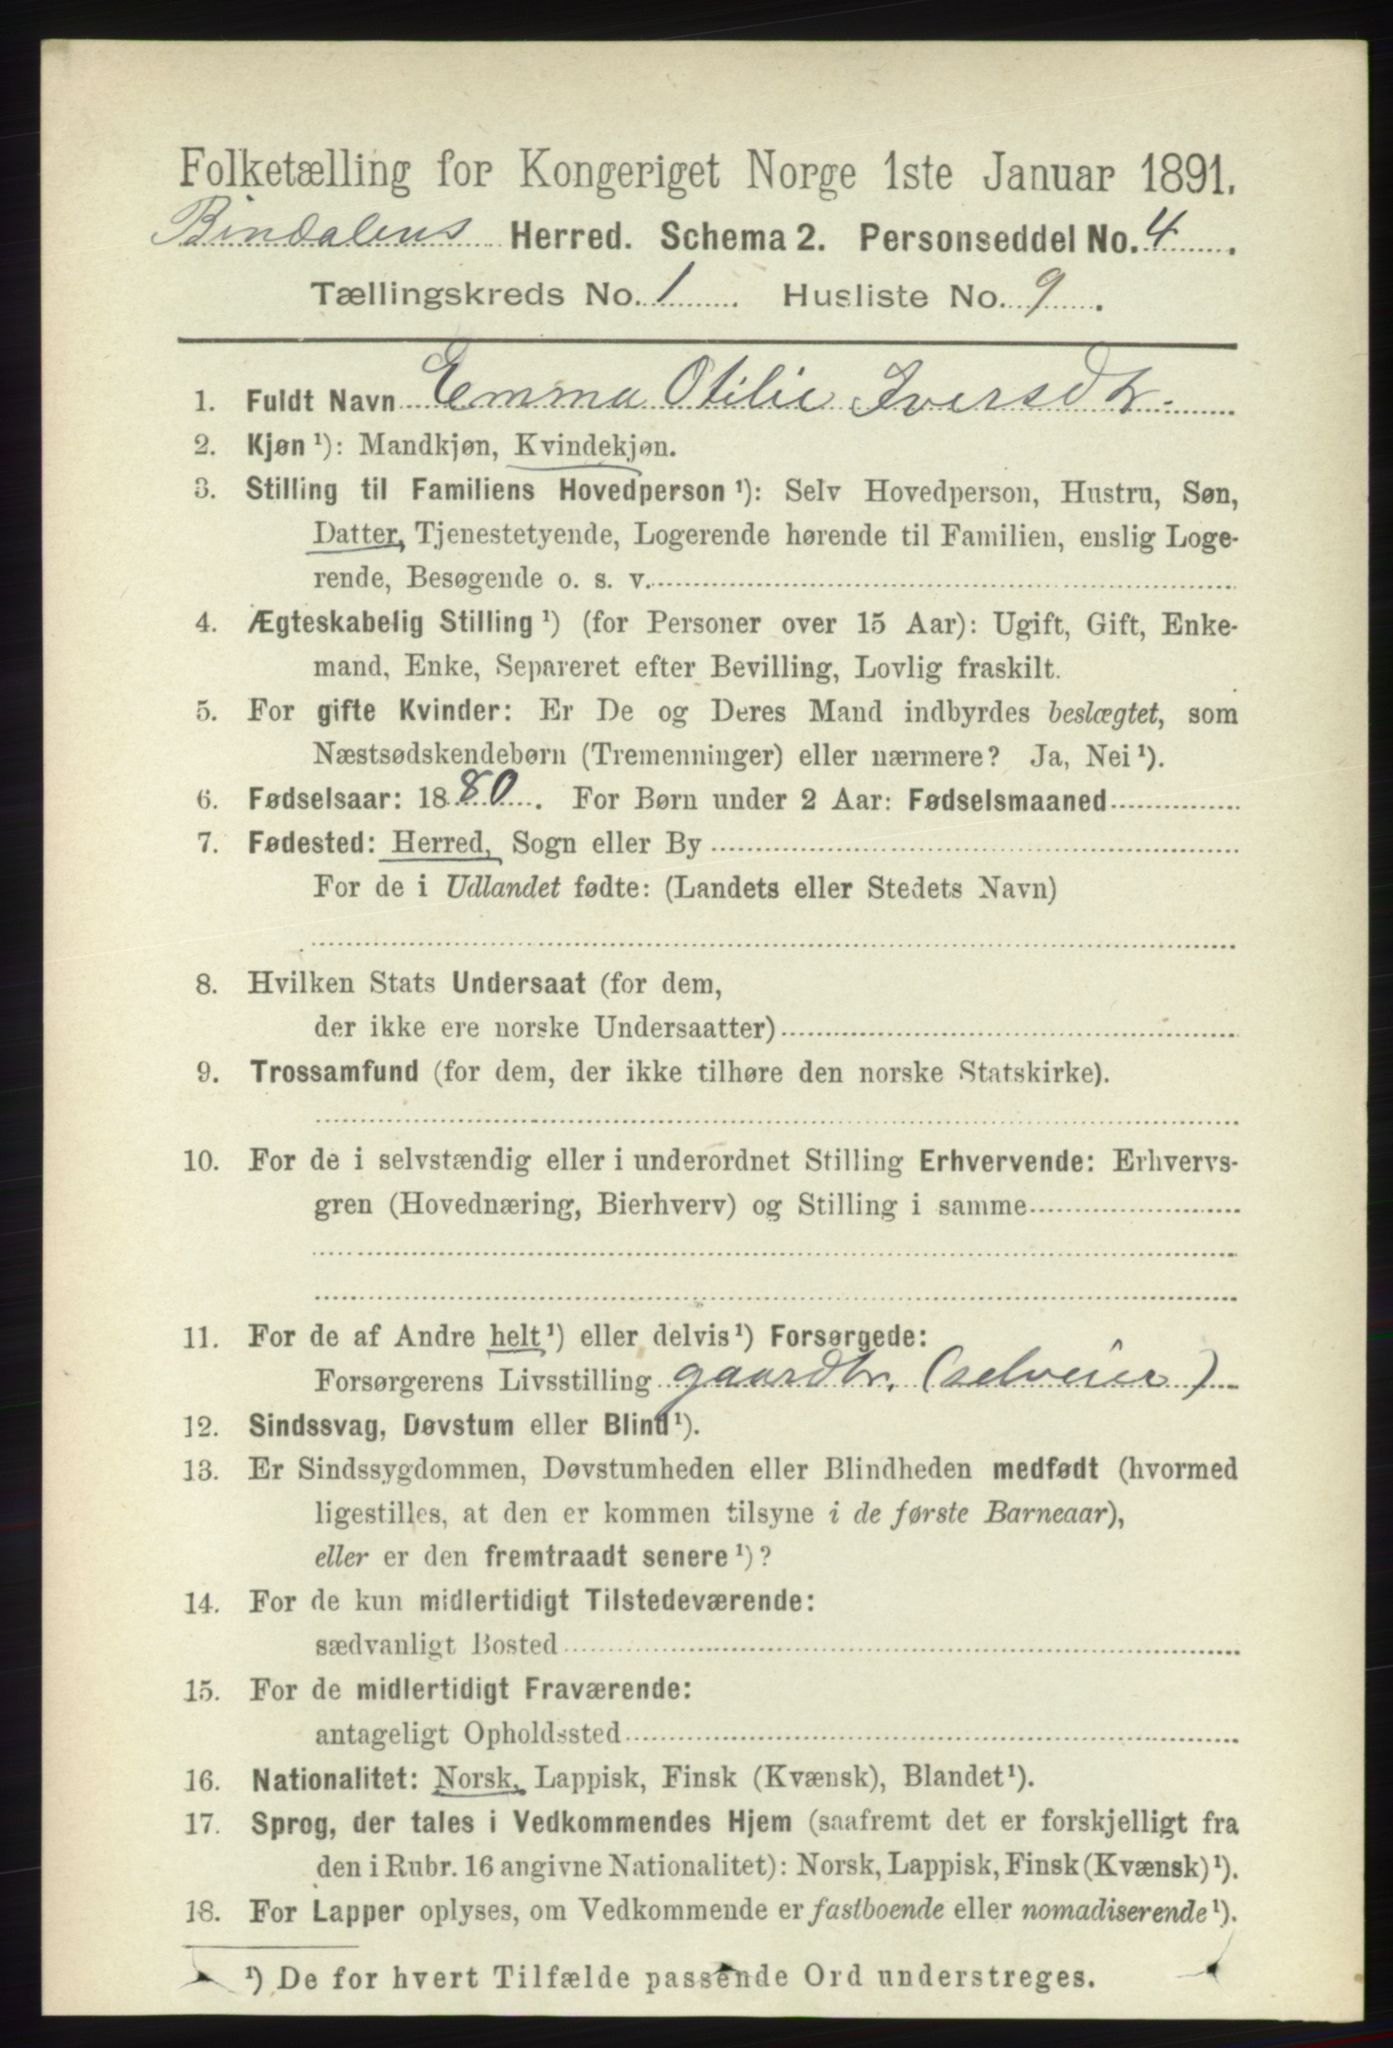 Folketælling for Kongeriget Norge 1ste Januar 1891.
Bindalens Herred. Schema 2. Personseddel No. 4
Tællingskreds No. 1 Husliste No. 9.
1. Fuldt Navn Emma Otilie Iversdtr.
2. Kjøn ¹): Mandkjøn, Kvindekjøn.
3. Stilling til Familiens Hovedperson ¹): Selv Hovedperson, Hustru, Søn,
Datter, Tjenestetyende, Logerende hørende til Familien, enslig Loge-
rende, Besøgende o. s. v.
4. Ægteskabelig Stilling ¹) (for Personer over 15 Aar): Ugift, Gift, Enke-
mand, Enke, Separeret efter Bevilling, Lovlig fraskilt.
5. For gifte Kvinder: Er De og Deres Mand indbyrdes beslægtet, som
Næstsødskendebørn (Tremenninger) eller nærmere? Ja, Nei ¹).
6. Fødselsaar: 1880. For Børn under 2 Aar: Fødselsmaaned
7. Fødested: Herred, Sogn eller By
For de i Udlandet fødte: (Landets eller Stedets Navn)
8. Hvilken Stats Undersaat (for dem,
der ikke ere norske Undersaatter)
9. Trossamfund (for dem, der ikke tilhøre den norske Statskirke).
10. For de i selvstændig eller i underordnet Stilling Erhvervende: Erhvervs-
gren (Hovednæring, Bierhverv) og Stilling i samme
11. For de af Andre helt ¹) eller delvis ¹) Forsørgede:
Forsørgerens Livsstilling gaardbr. (selveier)
12. Sindssvag, Døvstum eller Blind ¹).
13. Er Sindssygdommen, Døvstumheden eller Blindheden medfødt (hvormed
ligestilles, at den er kommen tilsyne i de første Barneaar),
eller er den fremtraadt senere ¹)?
14. For de kun midlertidigt Tilstedeværende:
sædvanligt Bosted
15. For de midlertidigt Fraværende:
antageligt Opholdssted
16. Nationalitet: Norsk, Lappisk, Finsk (Kvænsk), Blandet ¹).
17. Sprog, der tales i Vedkommendes Hjem (saafremt det er forskjelligt fra
den i Rubr. 16 angivne Nationalitet): Norsk, Lappisk, Finsk (Kvænsk) ¹).
18. For Lapper oplyses, om Vedkommende er fastboende eller nomadiserende ¹).
¹) De for hvert Tilfælde passende Ord understreges.